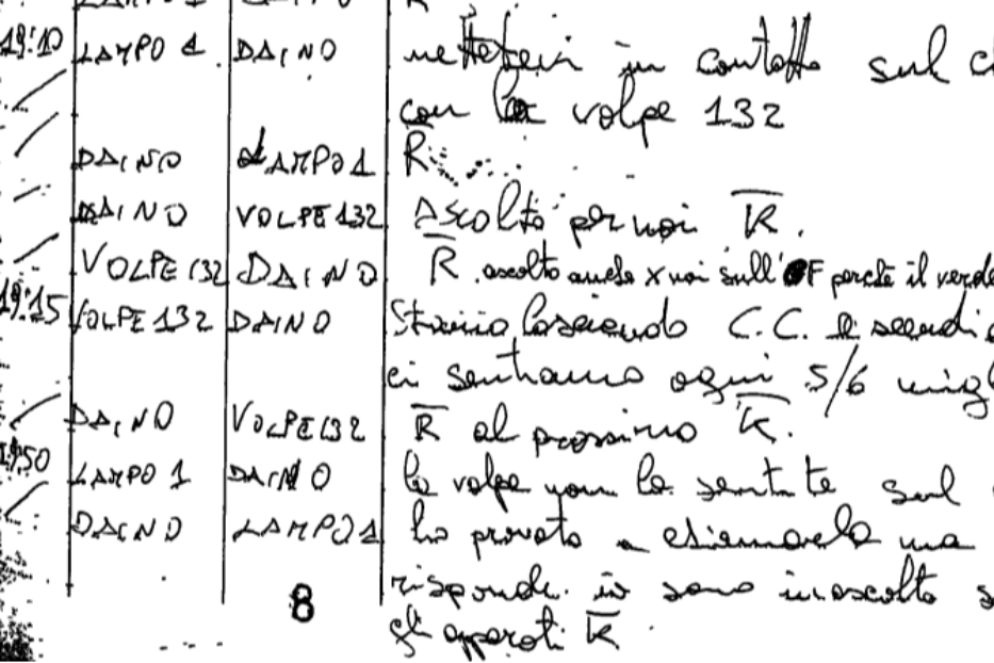 19:10 LAMPO 1 DAINO mettetevi in contatto sul
con la volpe 132
DAINO LAMPO 1 R̅
DAINO VOLPE 132 Ascolto per voi K̅.
VOLPE 132 DAINO R̅. ascolto anche x voi sull' F perché il verde
19:15 VOLPE 132 DAINO Stiamo lasciando C.C. e
ci sentiamo ogni 5/6
DAINO VOLPE 132 R̅ al prossimo K̅.
LAMPO 1 DAINO la volpe non la sentite sul
DAINO LAMPO 1 ho provato a ma
risponde. io sono in ascolto
gli apparati K̅.
8